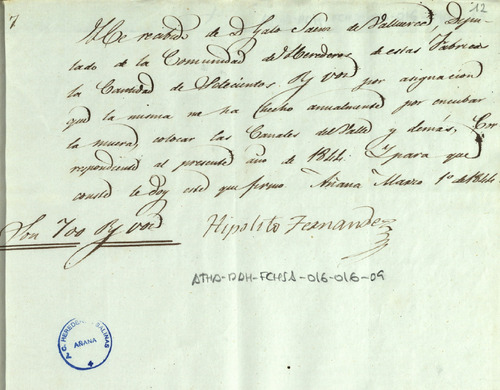 7
12
He recibido de D. Galo Sainz de Valluerca, Dipu-
tado de la Comunidad de Herederos de estas Fabricas
la Cantidad de Setecientos Rs. von por asignacion
que la misma me ha hecho anualmente por encubar
la muera, colocar las Canales del Valle y demás, Cor
respondiente al presente año de 1844. Y para que
conste le doy este que firmo Añana Marzo 1º de 1844
Son 700 Rs. von
Hipolito Fernandez
ATHA-DAH-FCHSA-016-016-09
A.C. HEREDEROS SALINAS
AÑANA
4